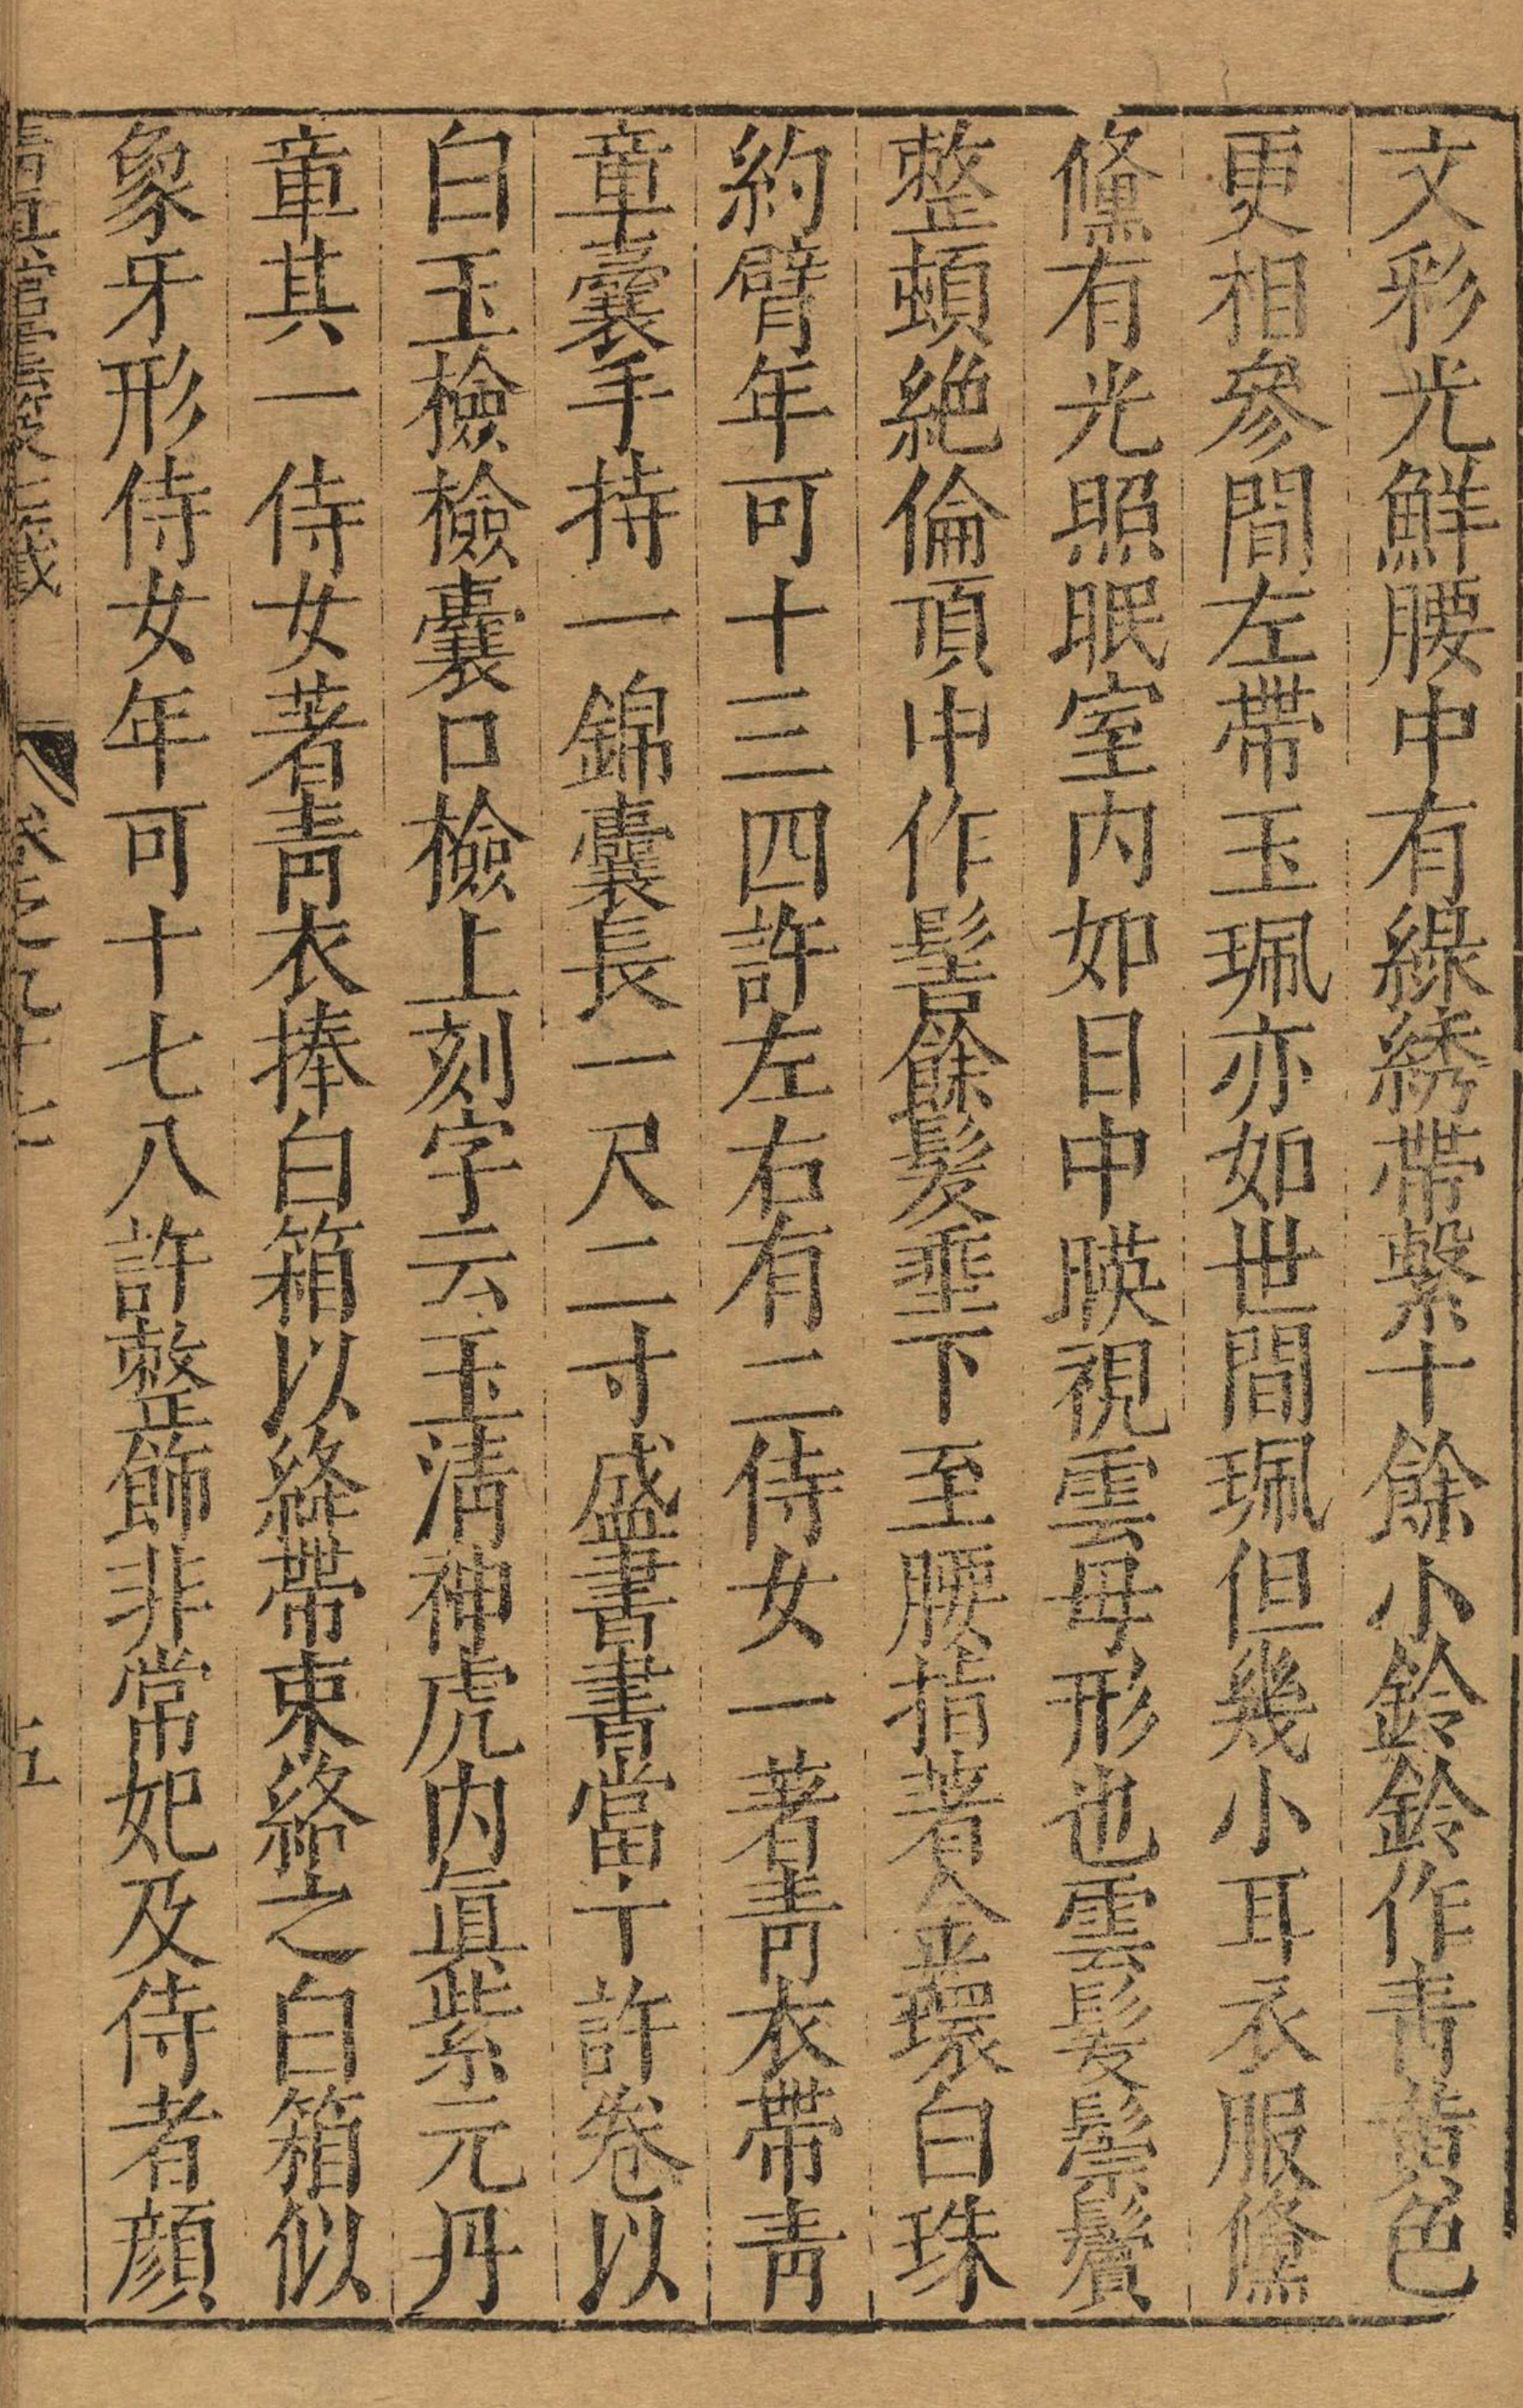 文彩光鮮腰中有綠綉帶繫十餘小鈴鈴作青黃色
更相參間左帶玉珮亦如世間珮但幾小耳衣服儵
儵有光照眠室內如日中暎視雲母形也雲髮鬃鬢
整頓絶倫頂中作髻餘髮垂下至腰指著金環白珠
約臂年可十三四許左右有二侍女一著青衣帶青
章囊手持一錦囊長一尺二寸盛書書當十許卷以
白玉檢檢囊口檢上刻字云玉清神虎內眞紫元丹
章其一侍女著青衣捧白箱以絳帶束絡之白箱似
象牙形侍女年可十七八許整飾非常妃及侍者顔
卷之九十七
五